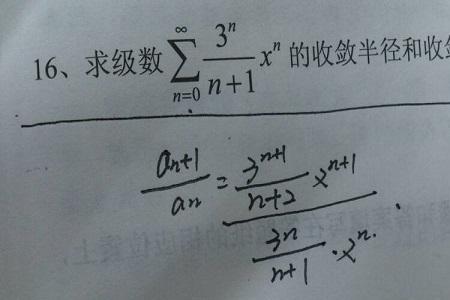 16、求级数 \sum_{n=0}^{\infty} \frac{3^n}{n+1} x^n 的收敛半径和收敛
\frac{a_{n+1}}{a_n} = \frac{\frac{3^{n+1}}{n+2} x^{n+1}}{\frac{3^n}{n+1} \cdot x^n}.